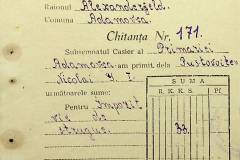 Raionul Alexanderfeld.
Comuna Adamovca.
Chitanța Nr. 171.
Subsemnatul Casier al Primăriei
Adamovca am primit dela Pustovoiten
Nicolai
următoarele sume:
Pentru Impozit
vie de
struguri
SUMA
R. K. K. S. Pf.
33